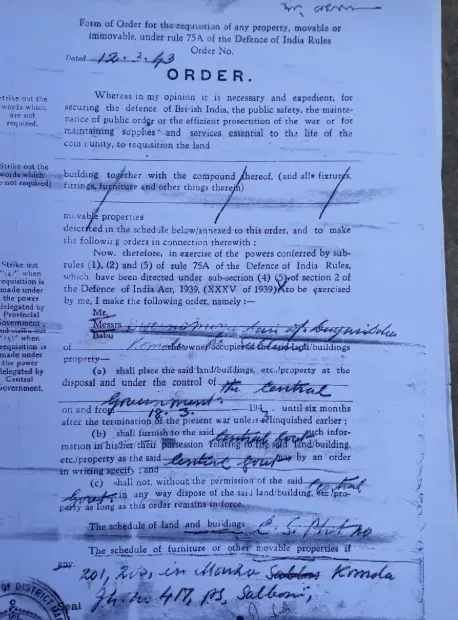 Form of Order for the requisition of any property, movable or
immovable, under rule 75A of the Defence of India Rules
Order No.
Dated 12.3.43
ORDER.
Strike out the
words which
are not
required.
Whereas in my opinion it is necessary and expedient, for
securing the defence of British India, the public safety, the mainte-
nance of public order or the efficient prosecution of the war or for
maintaining supplies and services essential to the life of the
community, to requisition the land
Strike out the
words which
are not required)
building together with the compound thereof, (and all fixtures,
fittings, furniture and other things therein)
movable properties
described in the schedule below/annexed to this order, and to make
the following orders in connection therewith :
Now, therefore, in exercise of the powers conferred by sub-
rules (1), (2) and (5) of rule 75A of the Defence of India Rules,
which have been directed under sub-section (4) (5) of section 2 of
the Defence of India Act, 1939, (XXXV of 1939) to be exercised
by me, I make the following order, namely :—
Strike out
"(4)" when
requisition is
made under
the power
delegated by
Provincial
Government
and strike out
"(5)" when
requisition is
made under
the power
delegated by
Central
Government.
Mr.
Messrs.
Babu
of owner/occupier land/buildings
property—
(a) shall place the said land/buildings, etc./property at the
disposal and under the control of the Central
Government
on and from 18.3. 194 until six months
after the termination of the present war unless relinquished earlier ;
(b) shall furnish to the said Central Govt such infor-
mation in his/her/their possession relating to the said land/building,
etc./property as the said Central Govt may by an order
in writing specify ; and
(c) shall not, without the permission of the said Central
Govt in any way dispose of the said land/building, etc/pro-
perty as long as this order remains in force.
The schedule of land and buildings C. S. Plot no
The schedule of furniture or other movable properties if
any.
201, in Mouza Komola
417, PS, Salboni,
OF DISTRICT MA
Seal